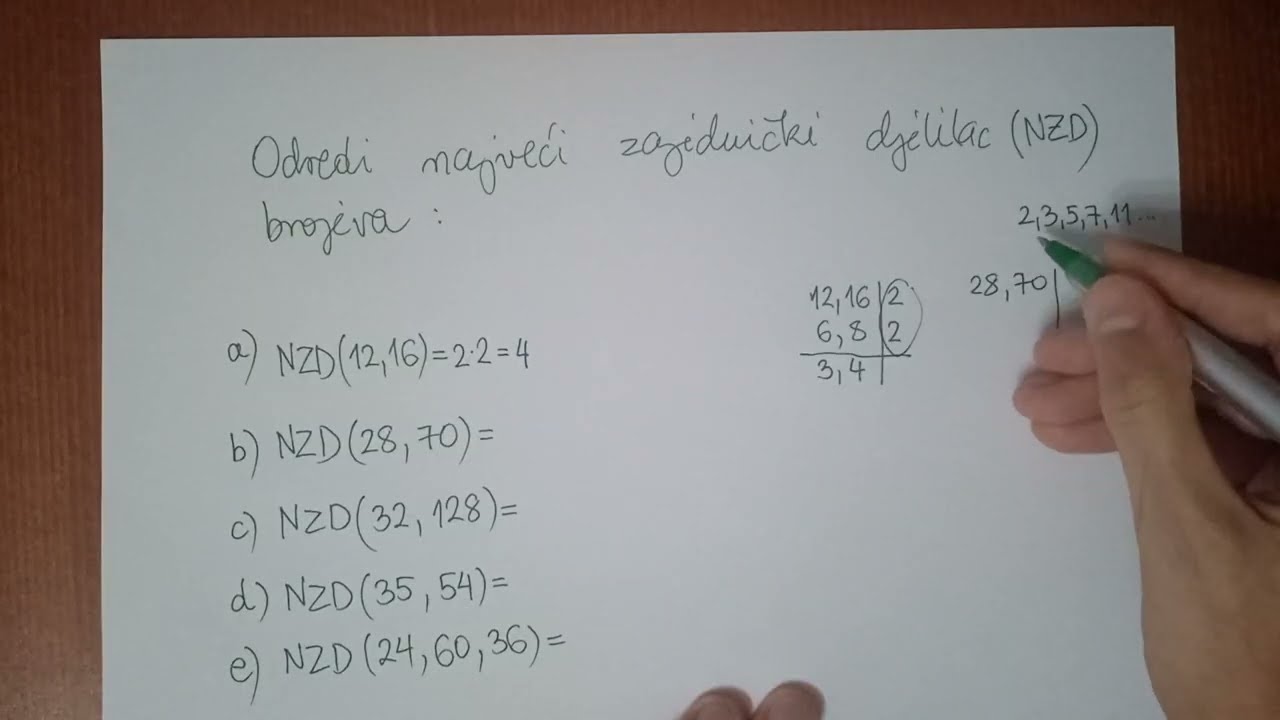 Odredi najveći zajednički djelilac (NZD)
brojeva :
2,3,5,7,11...
12,16 | 2
6,8 | 2
3,4 |
28,70 |
a) NZD(12,16)=2·2=4
b) NZD(28,70)=
c) NZD(32,128)=
d) NZD(35,54)=
e) NZD(24,60,36)=